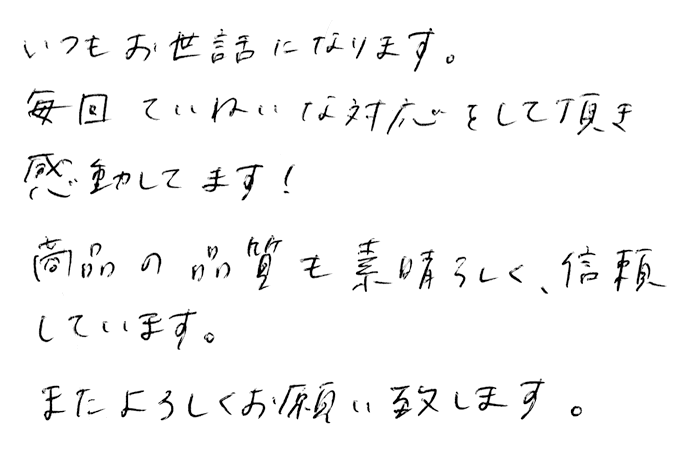 いつもお世話になります。
毎回ていねいな対応をして頂き
感動してます!
商品の品質も素晴らしく、信頼
しています。
またよろしくお願い致します。